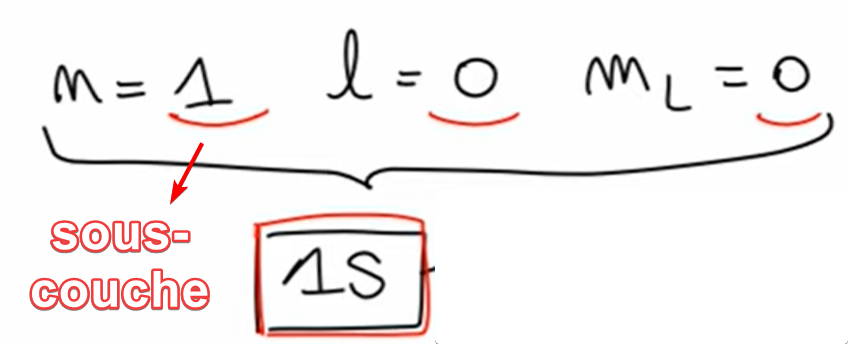 n = 1 l = 0 mL = 0
sous-
couche
1S